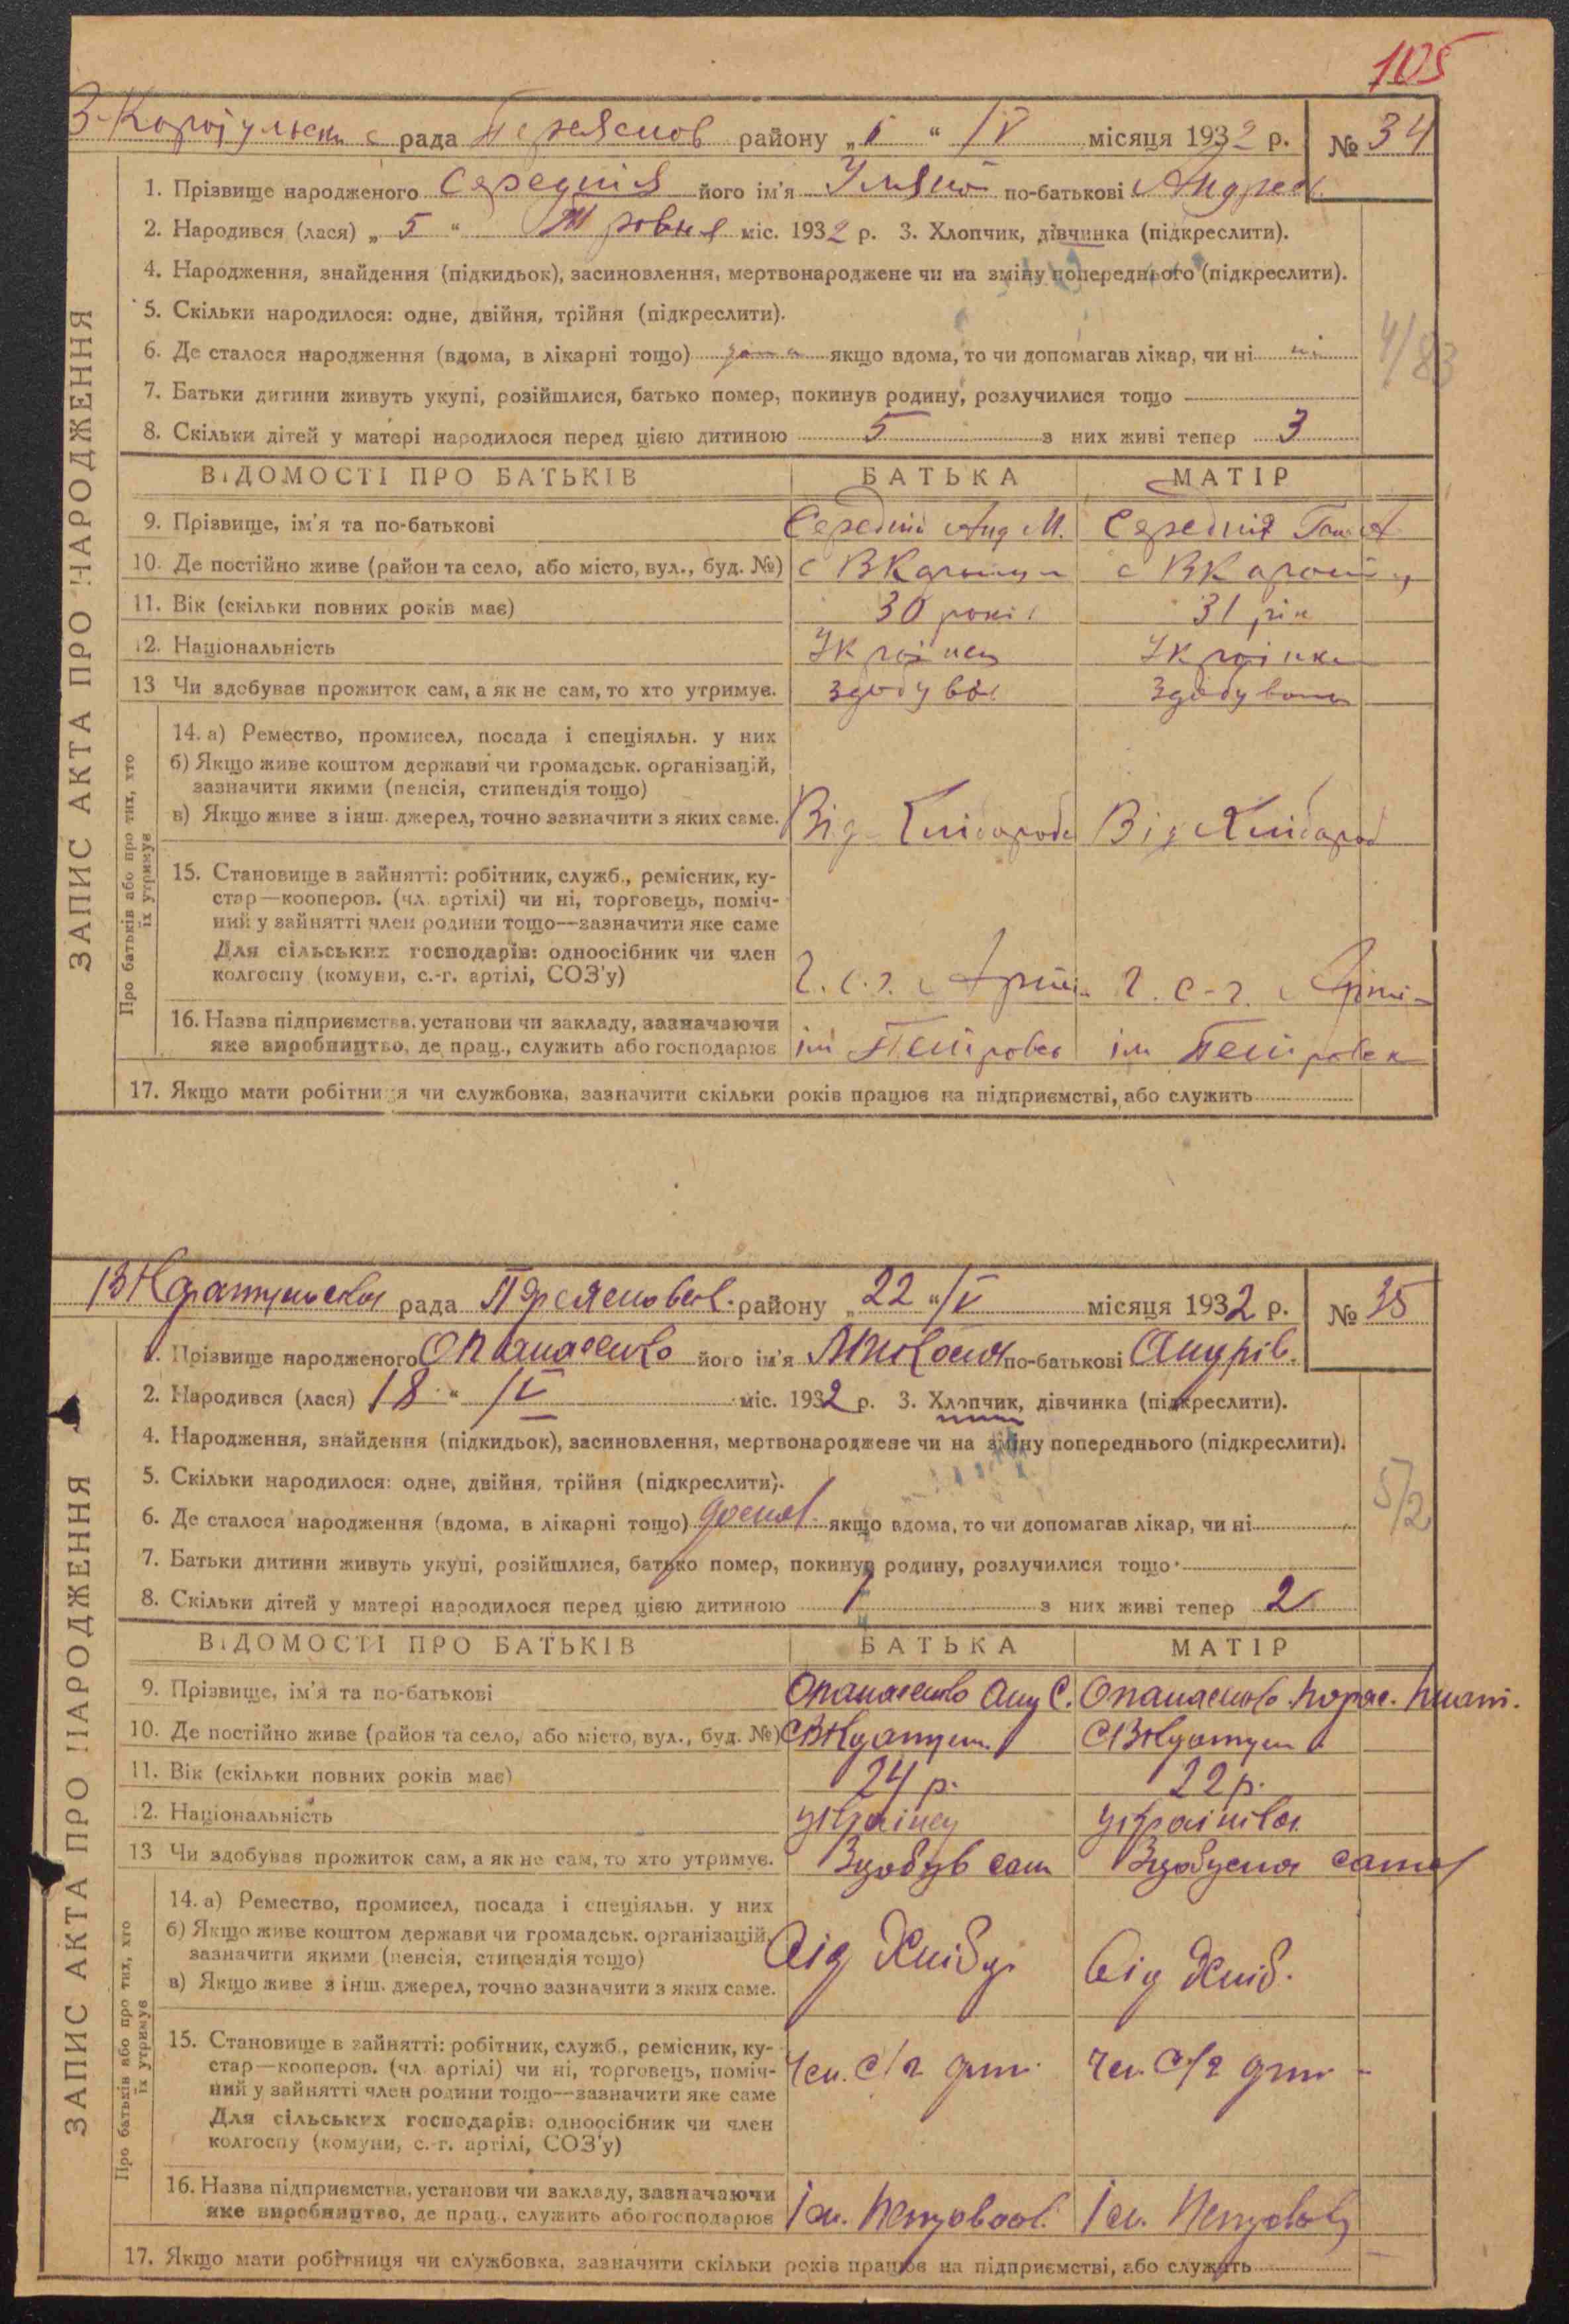 105
рада району „ “ IV місяця 1932 р. № 34
1. Прізвище народженого Середнія його ім'я Уляна по-батькові Андре
2. Народився (лася) „ 5 “ міс. 1932 р. 3. Хлопчик, дівчинка (підкреслити).
4. Народження, знайдення (підкидьок), засиновлення, мертвонароджене чи на зміну попереднього (підкреслити).
5. Скільки народилося: одне, двійня, трійня (підкреслити).
6. Де сталося народження (вдома, в лікарні тощо) дома якщо вдома, то чи допомагав лікар, чи ні ні
4/83
7. Батьки дитини живуть укупі, розійшлися, батько помер, покинув родину, розлучилися тощо
8. Скільки дітей у матері народилося перед цією дитиною 5 з них живі тепер 3
ВІДОМОСТІ ПРО БАТЬКІВ БАТЬКА МАТІР
9. Прізвище, ім'я та по-батькові Середній Анд М. Середнія Ган. А.
10. Де постійно живе (район та село, або місто, вул., буд. №) с с
11. Вік (скільки повних років має) 30 років 31 рік
12. Національність Українец Українка
13 Чи здобував прожиток сам, а як не сам, то хто утримує. здобував здобувала
14. а) Ремество, промисел, посада і спеціяльн. у них
б) Якщо живе коштом держави чи громадськ. організацій,
зазначити якими (пенсія, стипендія тощо)
в) Якщо живе з інш. джерел, точно зазначити з яких саме. Від Хлібороб Від Хлібороб
15. Становище в зайнятті: робітник, служб., ремісник, ку-
стар—кооперов. (чл. артілі) чи ні, торговець, поміч-
ний у зайнятті член родини тощо—зазначити яке саме
Для сільських господарів: одноосібник чи член
колгоспу (комуни, с.-г. артілі, СОЗ'у) Ч. с.г. Артіл. Ч. с-г. Артіл
16. Назва підприємства, установи чи закладу, зазначаючи
яке виробництво, де прац., служить або господарює ім Петровс ім Петровск
17. Якщо мати робітниця чи службовка, зазначити скільки років працює на підприємстві, або служить
ЗАПИС АКТА ПРО НАРОДЖЕННЯ
Про батьків або про тих, хто
їх утримує
рада району „ 22 “ IV місяця 1932 р. № 35
1. Прізвище народженого Опанасенко його ім'я Микола по-батькові Андрів.
2. Народився (лася) 18 “ IV міс. 1932 р. 3. Хлопчик, дівчинка (підкреслити).
4. Народження, знайдення (підкидьок), засиновлення, мертвонароджене чи на зміну попереднього (підкреслити).
5. Скільки народилося: одне, двійня, трійня (підкреслити).
6. Де сталося народження (вдома, в лікарні тощо) дома якщо вдома, то чи допомагав лікар, чи ні
5/2
7. Батьки дитини живуть укупі, розійшлися, батько помер, покинув родину, розлучилися тощо
8. Скільки дітей у матері народилося перед цією дитиною 1 з них живі тепер 2
ВІДОМОСТІ ПРО БАТЬКІВ БАТЬКА МАТІР
9. Прізвище, ім'я та по-батькові Опанасенко Анд С. Опанасенко
10. Де постійно живе (район та село, або місто, вул., буд. №)
11. Вік (скільки повних років має) 24 р. 22 р.
12. Національність Українец Українка
13 Чи здобував прожиток сам, а як не сам, то хто утримує. Здобув сам Здобула сама
14. а) Ремество, промисел, посада і спеціяльн. у них
б) Якщо живе коштом держави чи громадськ. організацій,
зазначити якими (пенсія, стипендія тощо)
в) Якщо живе з інш. джерел, точно зазначити з яких саме. Від Хлібор Від Хліб.
15. Становище в зайнятті: робітник, служб., ремісник, ку-
стар—кооперов. (чл. артілі) чи ні, торговець, поміч-
ний у зайнятті член родини тощо—зазначити яке саме Чл. с/г арт. Чл. с/г арт
Для сільських господарів: одноосібник чи член
колгоспу (комуни, с.-г. артілі, СОЗ'у)
16. Назва підприємства, установи чи закладу, зазначаючи
яке виробництво, де прац., служить або господарює Ім. Ім.
17. Якщо мати робітниця чи службовка, зазначити скільки років працює на підприємстві, або служить
ЗАПИС АКТА ПРО НАРОДЖЕННЯ
Про батьків або про тих, хто
їх утримує